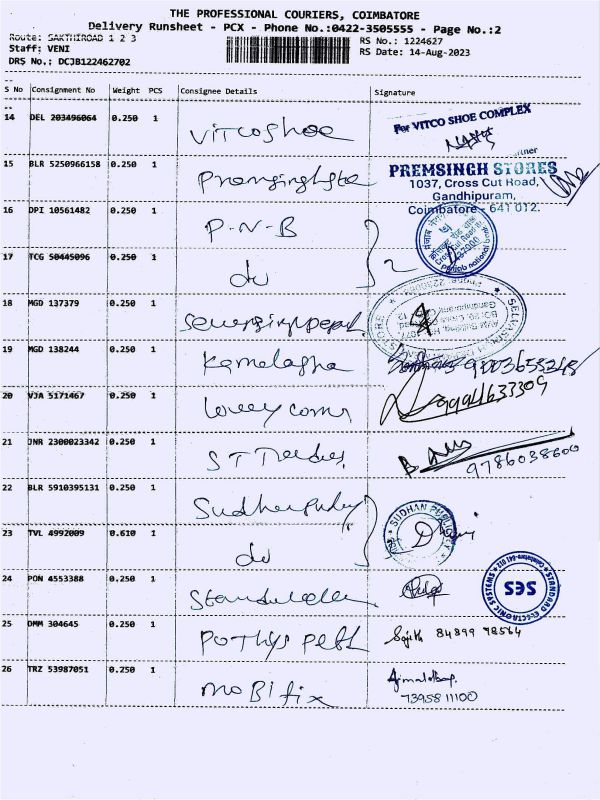 THE PROFESSIONAL COURIERS, COIMBATORE
Delivery Runsheet - PCX - Phone No.:0422-3505555 - Page No.:2
Route: SAKTHIROAD 1 2 3
RS No.: 1224627
Staff: VENI
RS Date: 14-Aug-2023
DRS No.: DCJB122462702
S No Consignment No Weight PCS Consignee Details Signature
14 DEL 203496064 0.250 1 Vitcoshoe
For VITCO SHOE COMPLEX
15 BLR 5250966158 0.250 1
PREMSINGH STORES
1037, Cross Cut Road,
Gandhipuram,
Coimbatore - 641 012.
16 DPI 10561482 0.250 1 P-N-B
17 TCG 50445096 0.250 1 do 2
punjab national bank
18 MGD 137379 0.250 1
19 MGD 138244 0.250 1
20 VJA 5171467 0.250 1
9994633309
21 JNR 2300023342 0.250 1 ST Trades
9786038600
22 BLR 5910395131 0.250 1
SUDHAN PUBLICITY
23 TVL 4992009 0.610 1 do
24 PON 4553388 0.250 1
STANDARD ELECTRONIC SYSTEMS
Coimbatore-641 012
SES
25 DMM 304645 0.250 1 Pothys
Sajith 84899 98564
26 TRZ 53987051 0.250 1 mobifix
7395811100